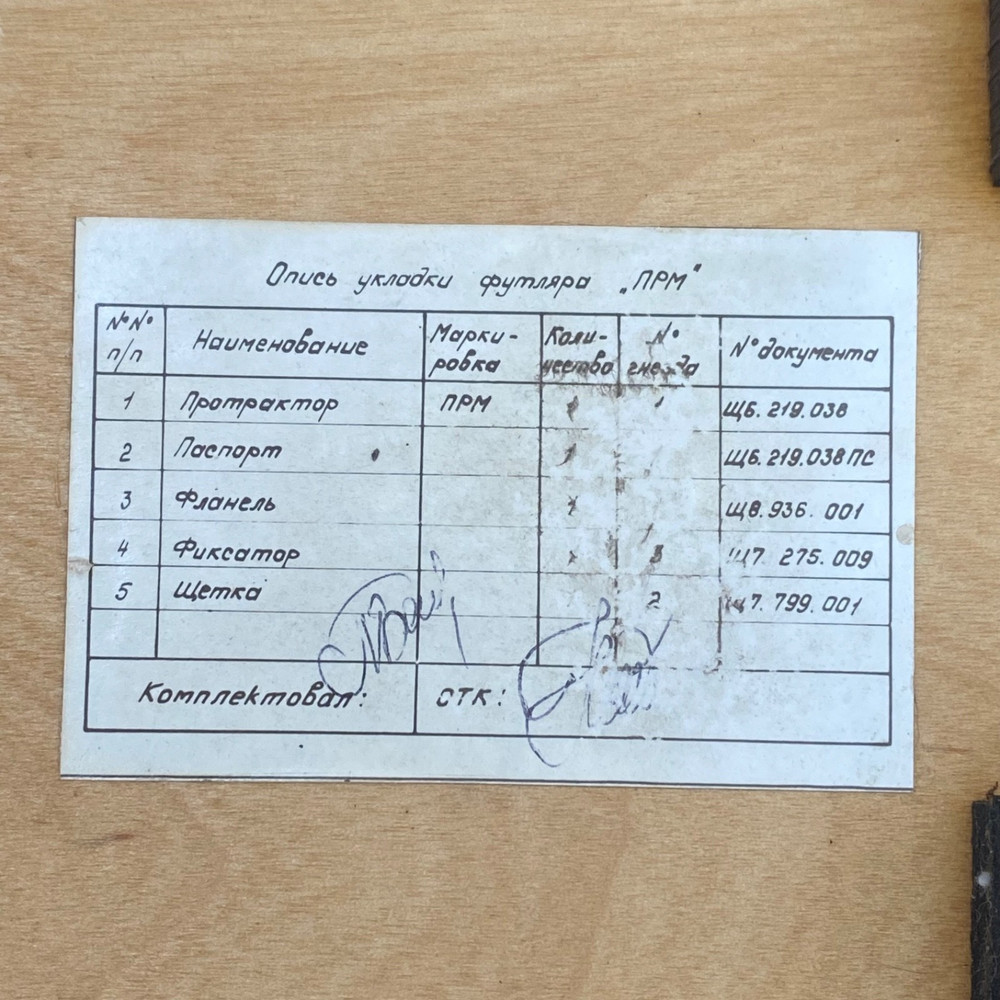 Опись укладки футляра „ПРМ"
№№ п/п Наименование Марки- ровка Коли- чество № гнезда № документа
1 Протрактор ПРМ 1 1 Щ6. 219. 038
2 Паспорт 1 Щ6. 219. 038 ПС
3 Фланель 1 Щ8. 936. 001
4 Фиксатор 1 3 Щ7. 275. 009
5 Щетка 2 Щ7. 799. 001
Комплектовал: СТК: